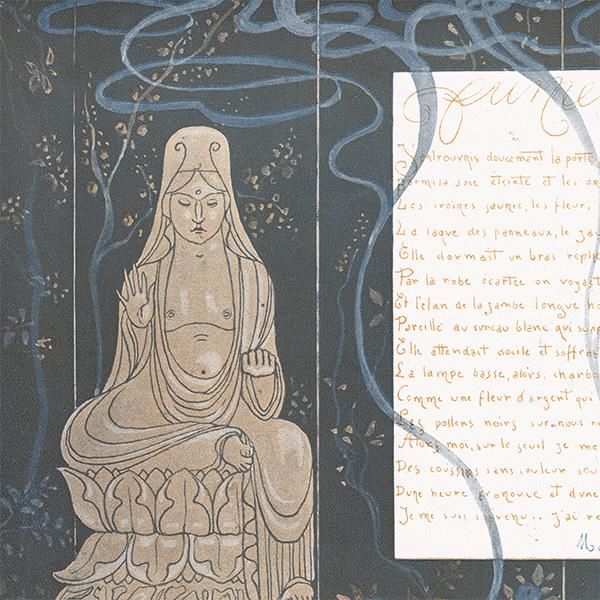 fume
J'entrouvris doucement la porte
Parmi la soie éteinte et les
Les ivoires jaunis, les fleurs,
La laque des panneaux, le
Elle dormait un bras
Par la robe écartée on voyait
Et l'élan de la jambe longue
Pareille au sureau blanc qui
Elle attendait docile et
La lampe basse, alors,
Comme une fleur d'argent qui
Les pollens noirs sur nous
Alors moi, sur le seuil je me
Des coussins sans couleur
D'une heure et d'une
Je me suis souvenu.. j'ai